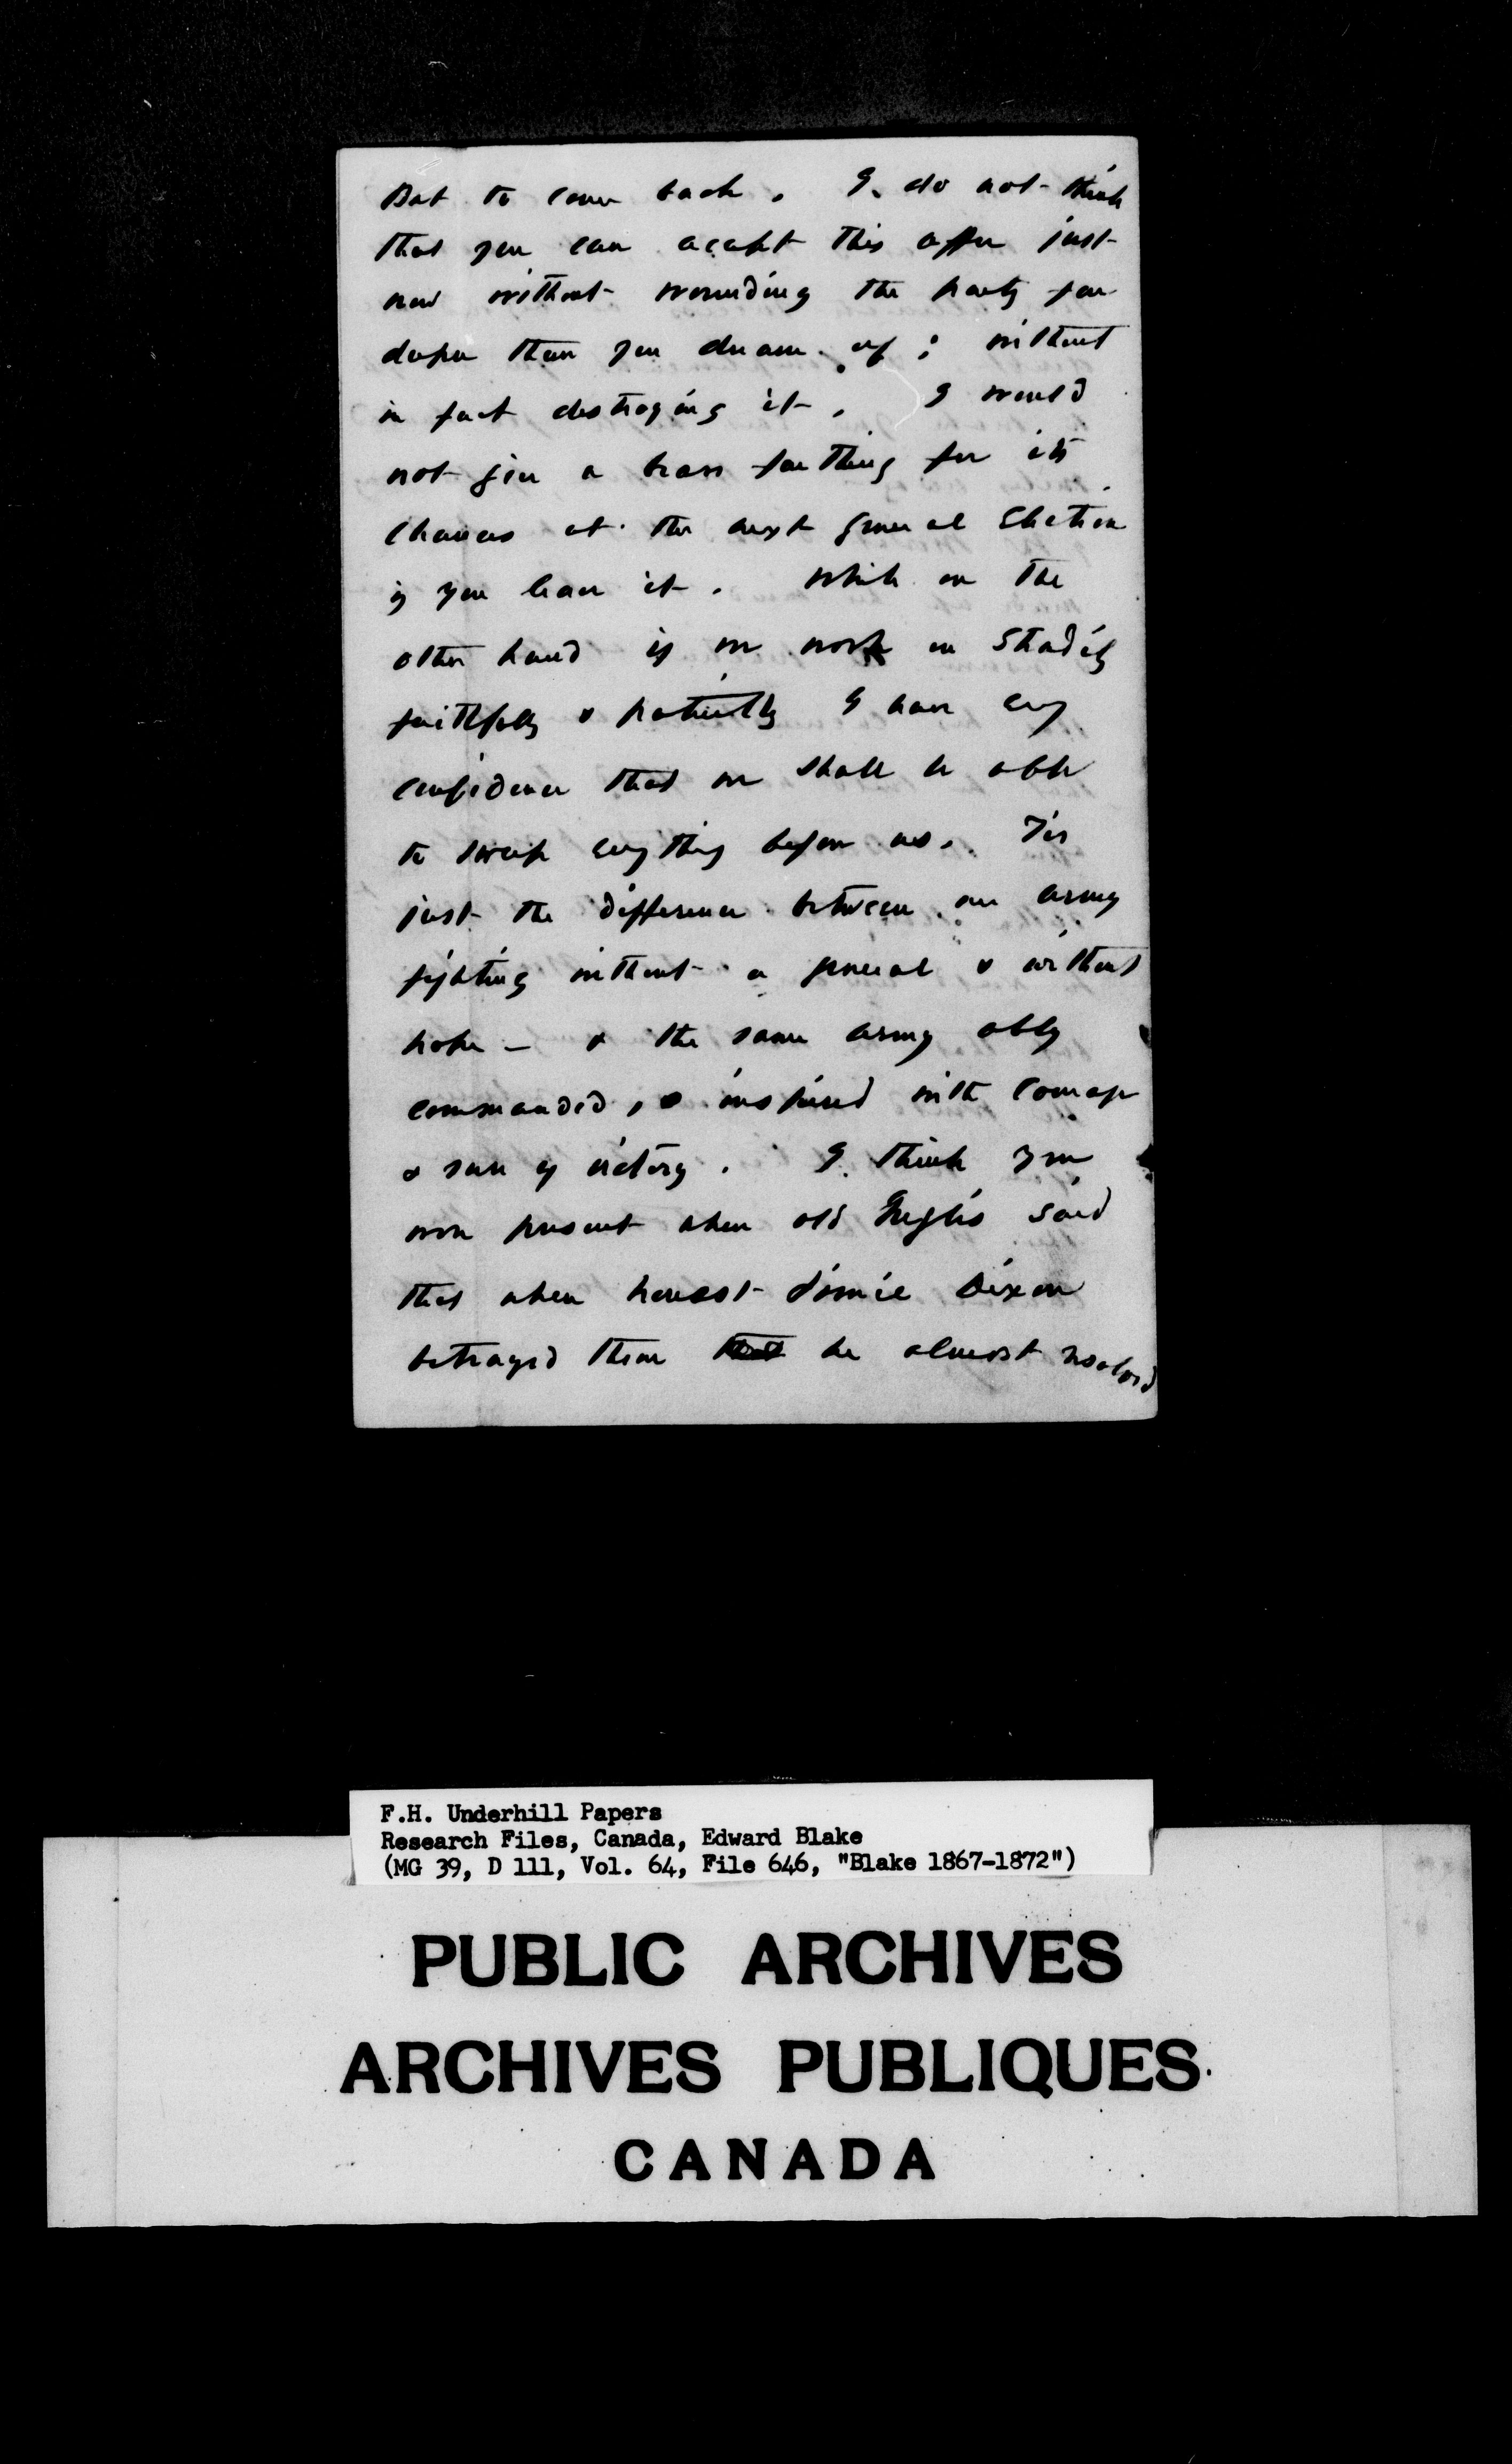 But to come back. I do not think
that you can accept this offer just
now without wounding the party far
deeper than you dream of; without
in fact destroying it. I would
not give a brass farthing for its
chances at the next general Election
if you leave it. While on the
other hand if we work on steadily
faithfully & patiently I have every
confidence that we shall be able
to sweep everything before us. Tis
just the difference between an army
fighting without a general & without
hope — & the same army ably
commanded, & inspired with courage
& sure of victory. I think you
were present when old said
that when honest Jimmie Dixon
betrayed them he almost resolved
F.H. Underhill Papers
Research Files, Canada, Edward Blake
(MG 39, D 111, Vol. 64, File 646, "Blake 1867-1872")
PUBLIC ARCHIVES
ARCHIVES PUBLIQUES
CANADA